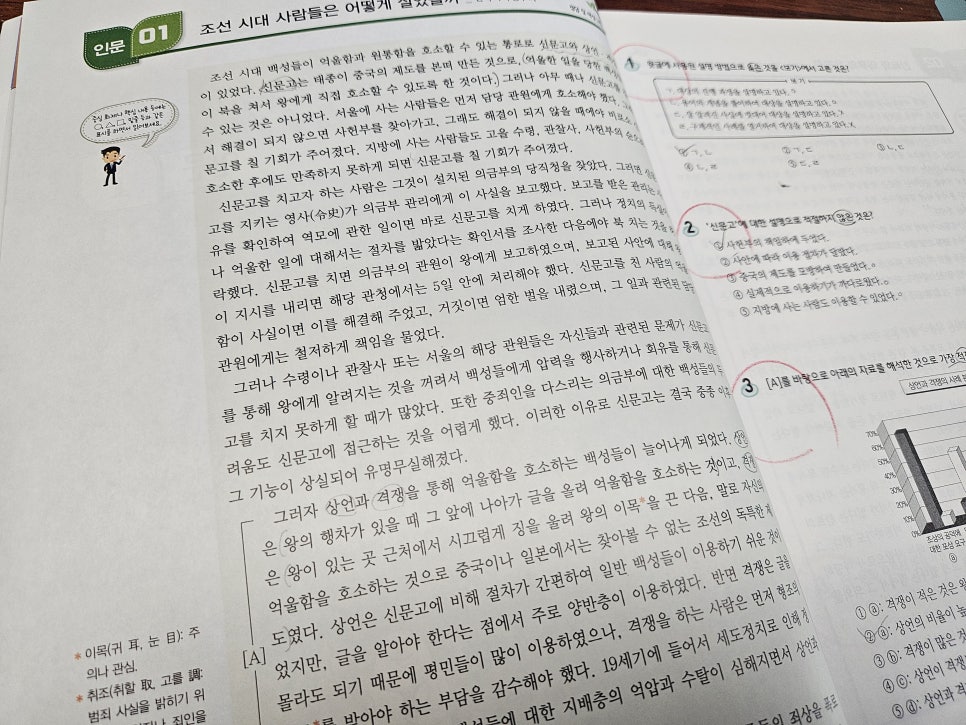 인문 01
조선 시대 사람들은 어떻게
조선 시대 백성들이 억울함과 원통함을 호소할 수 있는 통로로 신문고와 상언,
이 있었다. 신문고는 태종이 중국의 제도를 본떠 만든 것으로, (억울한 일을 당한
이 북을 쳐서 왕에게 직접 호소할 수 있도록 한 것이다. 그러나 아무 때나 신문고를
수 있는 것은 아니었다. 서울에 사는 사람들은 먼저 담당 관원에게 호소해야 했다.
서 해결이 되지 않으면 사헌부를 찾아가고, 그래도 해결이 되지 않을 때에야 비로소
문고를 칠 기회가 주어졌다. 지방에 사는 사람들도 고을 수령, 관찰사, 사헌부의 순으로
호소한 후에도 만족하지 못하게 되면 신문고를 칠 기회가 주어졌다.
신문고를 치고자 하는 사람은 그것이 설치된 의금부의 당직청을 찾았다. 그러면
고를 지키는 영사(令史)가 의금부 관리에게 이 사실을 보고했다. 보고를 받은 관리는
유를 확인하여 역모에 관한 일이면 바로 신문고를 치게 하였다. 그러나 정치의
나 억울한 일에 대해서는 절차를 밟았다는 확인서를 조사한 다음에야 북 치는 것을
락했다. 신문고를 치면 의금부의 관원이 왕에게 보고하였으며, 보고된 사안에 대해
이 지시를 내리면 해당 관청에서는 5일 안에 처리해야 했다. 신문고를 친 사람의
함이 사실이면 이를 해결해 주었고, 거짓이면 엄한 벌을 내렸으며, 그 일과 관련된
관원에게는 철저하게 책임을 물었다.
그러나 수령이나 관찰사 또는 서울의 해당 관원들은 자신들과 관련된 문제가 신문고
를 통해 왕에게 알려지는 것을 꺼려서 백성들에게 압력을 행사하거나 회유를 통해
고를 치지 못하게 할 때가 많았다. 또한 중죄인을 다스리는 의금부에 대한 백성들의
려움도 신문고에 접근하는 것을 어렵게 했다. 이러한 이유로 신문고는 결국 중종 이후
그 기능이 상실되어 유명무실해졌다.
그러자 상언과 격쟁을 통해 억울함을 호소하는 백성들이 늘어나게 되었다. 상언
은 왕의 행차가 있을 때 그 앞에 나아가 글을 올려 억울함을 호소하는 것이고, 격쟁
은 왕이 있는 곳 근처에서 시끄럽게 징을 울려 왕의 이목*을 끈 다음, 말로 자신의
억울함을 호소하는 것으로 중국이나 일본에서는 찾아볼 수 없는 조선의 독특한
도였다. 상언은 신문고에 비해 절차가 간편하여 일반 백성들이 이용하기 쉬운 것이
었지만, 글을 알아야 한다는 점에서 주로 양반층이 이용하였다. 반면 격쟁은 글을
몰라도 되기 때문에 평민들이 많이 이용하였으나, 격쟁을 하는 사람은 먼저 형조의
를 받아야 하는 부담을 감수해야 했다. 19세기에 들어서 세도정치로 인해
대한 지배층의 억압과 수탈이 심해지면서 상언과
[A]
* 이목(귀 耳, 눈 目): 주
의나 관심.
* 취조(취할 取, 고를 調
범죄 사실을 밝히기 위
1 윗글에 사용된 설명 방법으로 옳은 것을 <보기>에서 고른 것은?
보기
① ㄱ, ㄴ
② ㄱ, ㄷ
③ ㄴ, ㄷ
④ ㄴ, ㄹ
⑤ ㄷ, ㄹ
2 '신문고'에 대한 설명으로 적절하지 않은 것은?
① 사헌부의 책임하에 두었다.
② 사안에 따라 이용 절차가 달랐다.
③ 중국의 제도를 모방하여 만들었다.
④ 실제적으로 이용하기가 까다로웠다.
⑤ 지방에 사는 사람도 이용할 수 있었다.
3 [A]를 바탕으로 아래의 자료를 해석한 것으로 가장
상언과 격쟁의 사례
70%
60%
50%
40%
30%
20%
10%
0%
조상의 공덕에
대한 포상 요구
ⓐ
① ⓐ: 격쟁이 적은 것은
② ⓐ: 상언의 비율이
③ ⓑ: 격쟁이 많은 것
④ ⓒ: 상언이 격쟁
⑤ ⓓ: 상언과